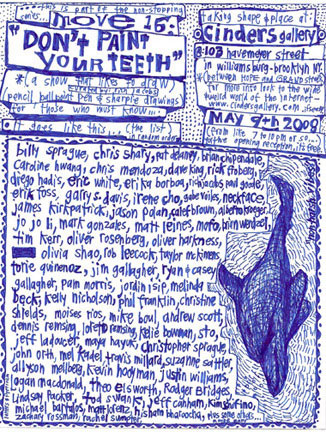 this is part of the non-stopping
move 15:
"DON'T PAINT
YOUR TEETH"
*(a show that likes to draw)
curated by rich jacobs
pencil, ball point pen & sharpie drawings
for those who must know...
it goes like this... (the list)
taking shape & place at:
Cinders gallery
103 havemeyer street
in williamsburg - brooklyn NY.
(between HOPE and GRAND street)
for more info look to the wide
world of the internet
www.cindersgallery.com
MAY 9th 2008
(from like 7 to 10pm or so)
the opening reception, its free.
billy sprague, chris shary, pat deaney, brian chippendale,
caroline hwang, chris mendoza, dave king, rick froberg,
diego hadis, eric white, erika borboa, rich jacobs, paul goode,
erik foss, garry s. davis, irene cho, gabe villes, neckface,
james kirkpatrick, jason polan, calef brown, alberto kroeger,
jo jo li, mark gonzales, matt leines, mofo, brien werdzel,
tim kerr, oliver rosenberg, oliver harkness,
olivia shao, rob leecock, taylor mckimens,
jim gallagher, ryan & casey,
gallagher, pam morris, jordin isip, melinda
beck, kelly nicholson, phil franklin, christine
shields, moises rios, mike bou, andrew scott,
dennis remsing, loreto remsing, kelie bowman, sto,
jeff ladouceur, maya hayuk, christopher sprague,
john orth, mel kadel, travis millard, suzanne sattler,
allyson mellberg, kevin hooyman, justin williams,
ogan macdonald, theo elsworth, Rodger Bridges,
Lindsay Packer, tod swank, jeff canham, kime buzino,
michael bartalos, matt lorenz, hisham bharoocha,
zachary rossman, rachel sumpter